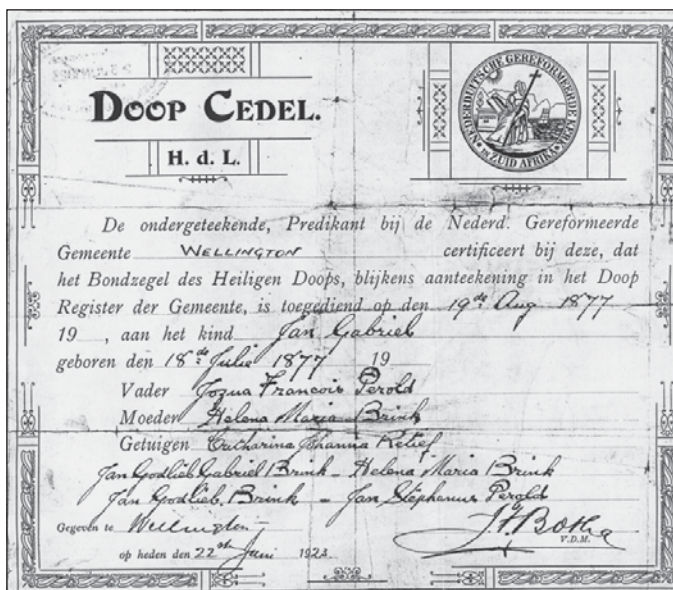 DOOP CEDEL.
H. d. L.
NEDERDUITSCHE GEREFORMEERDE KERK
IN ZUID AFRIKA
De ondergeteekende, Predikant bij de Nederd. Gereformeerde
Gemeente WELLINGTON certificeert bij deze, dat
het Bondzegel des Heiligen Doops, blijkens aanteekening in het Doop
Register der Gemeente, is toegediend op den 19de Aug 1877
19 , aan het kind Jan Gabriel
geboren den 18de Julie 1877 19
Vader Jozua Francois Perold
Moeder Helena Maria Brink
Getuigen Catharina Johanna Retief
Jan Godlieb Gabriel Brink - Helena Maria Brink
Jan Godlieb. Brink - Jan Stephanus Perold
Gegeven te Wellington
J. F. Botha
V.D.M.
op heden den 22st Juni 1924